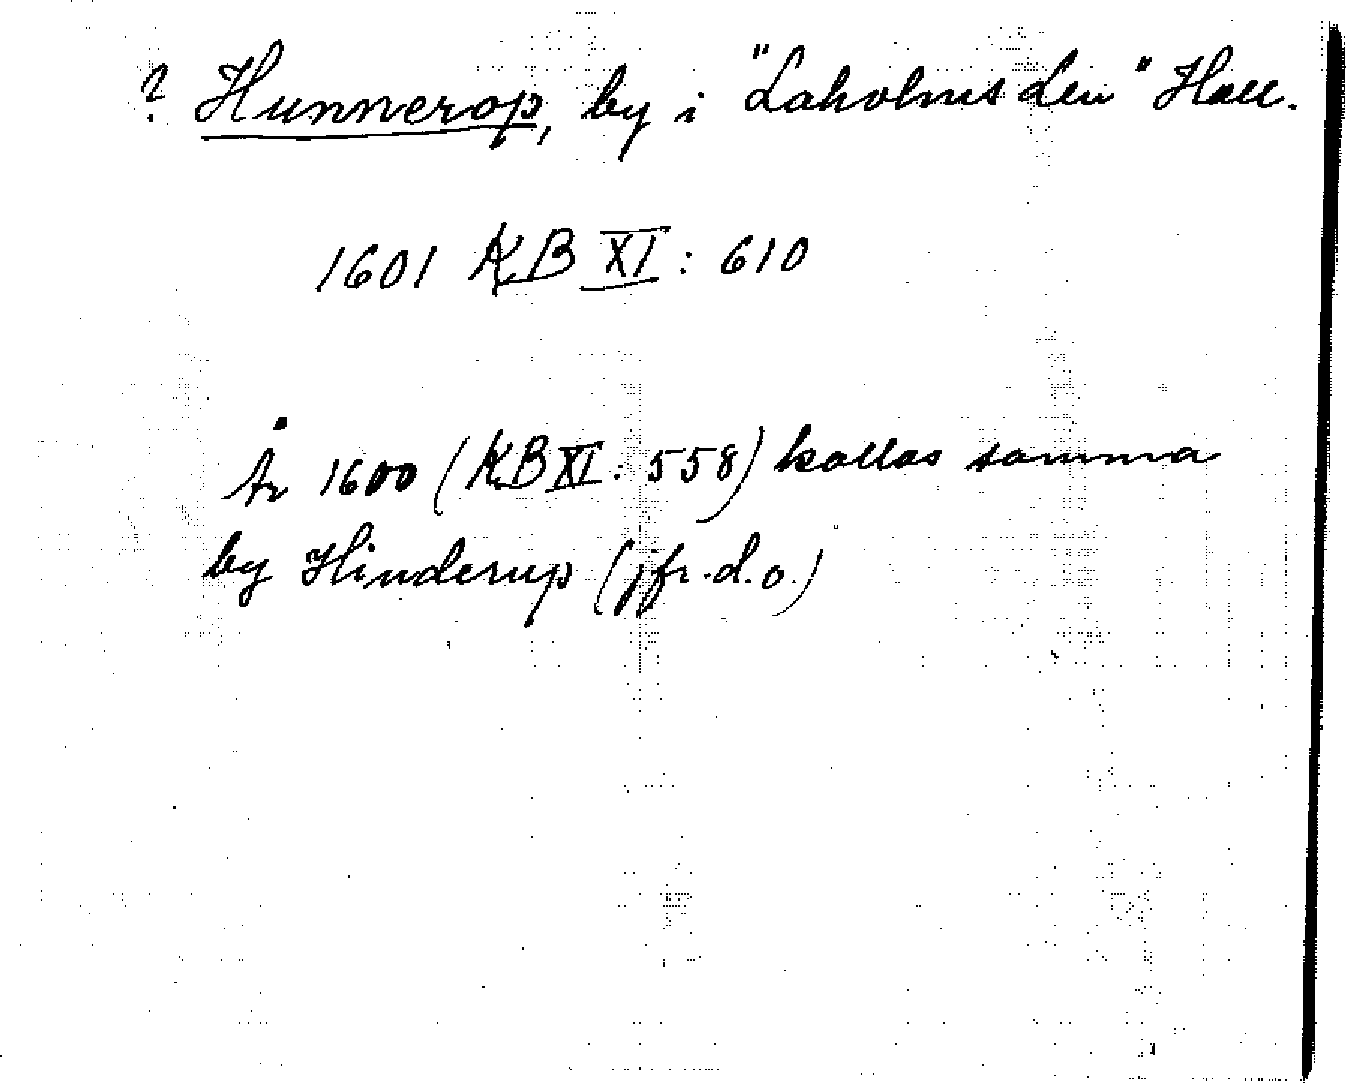 ? Hunnerop, by i "Laholms len" Hall.
1601 KB XI: 610
År 1600 (KB XI: 558) kallas samma
by Hinderup (jfr. d.o.)